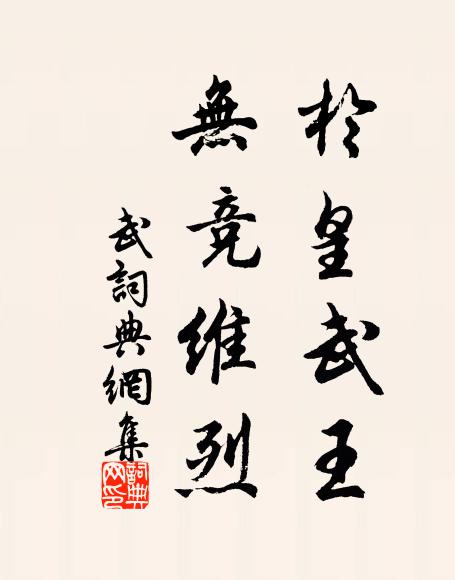 於皇武王
無竞維烈
武詞典網集
詞典网印